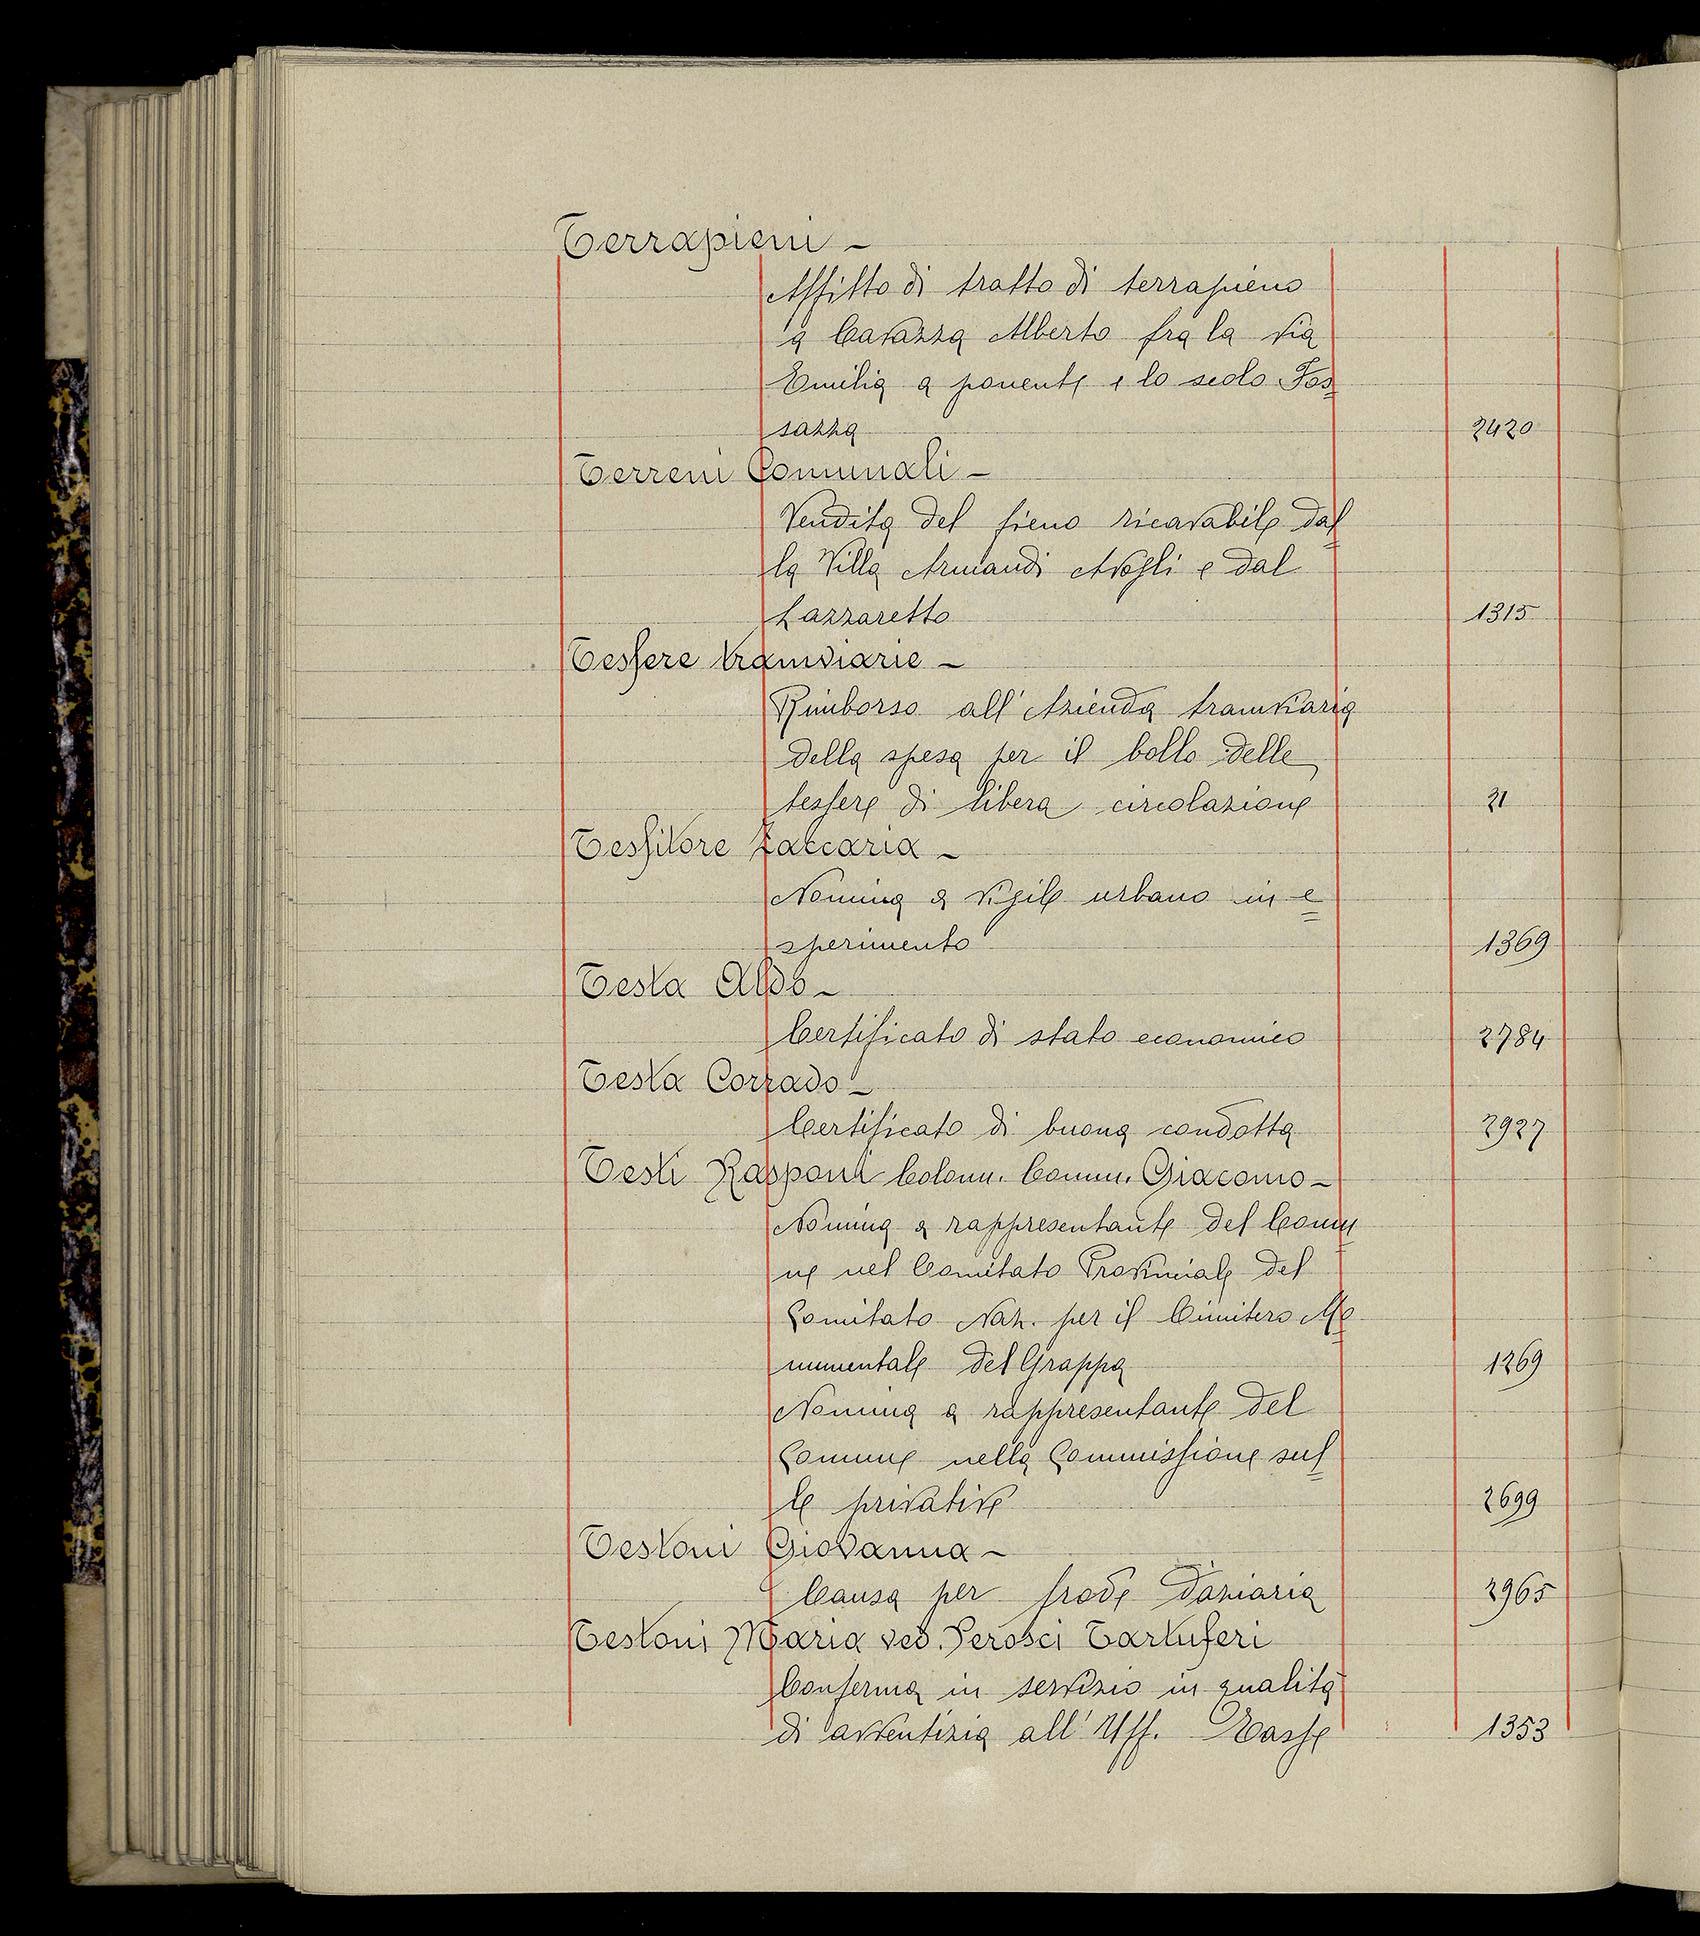 Terrapieni -
Affitto di tratto di terrapieno
a Cavazza Alberto fra la via
Emilia a ponente e lo scolo Fos=
sazza 2420
Terreni Comunali -
Vendita del fieno ricavabile dal=
la Villa Armandi Avogli e dal
Lazzaretto 1315
Tessere tramviarie -
Rimborso all'Azienda tramviaria
della spesa per il bollo delle
tessere di libera circolazione 21
Tessitore Zaccaria -
Nomina a vigile urbano in e=
sperimento 1369
Testa Aldo -
Certificato di stato economico 2784
Testa Corrado -
Certificato di buona condotta 2927
Testi Rasponi Colonn. Comm. Giacomo -
Nomina a rappresentante del Comu=
ne nel Comitato Provinciale del
Comitato Naz. per il Cimitero Mo=
numentale del Grappa 1269
Nomina a rappresentante del
Comune nella Commissione sul=
le privative 2699
Testoni Giovanna -
Causa per frode daziaria 2965
Testoni Maria ved. Perosci Tartuferi
Conferma in servizio in qualità
di avventizia all'Uff. Tasse 1353